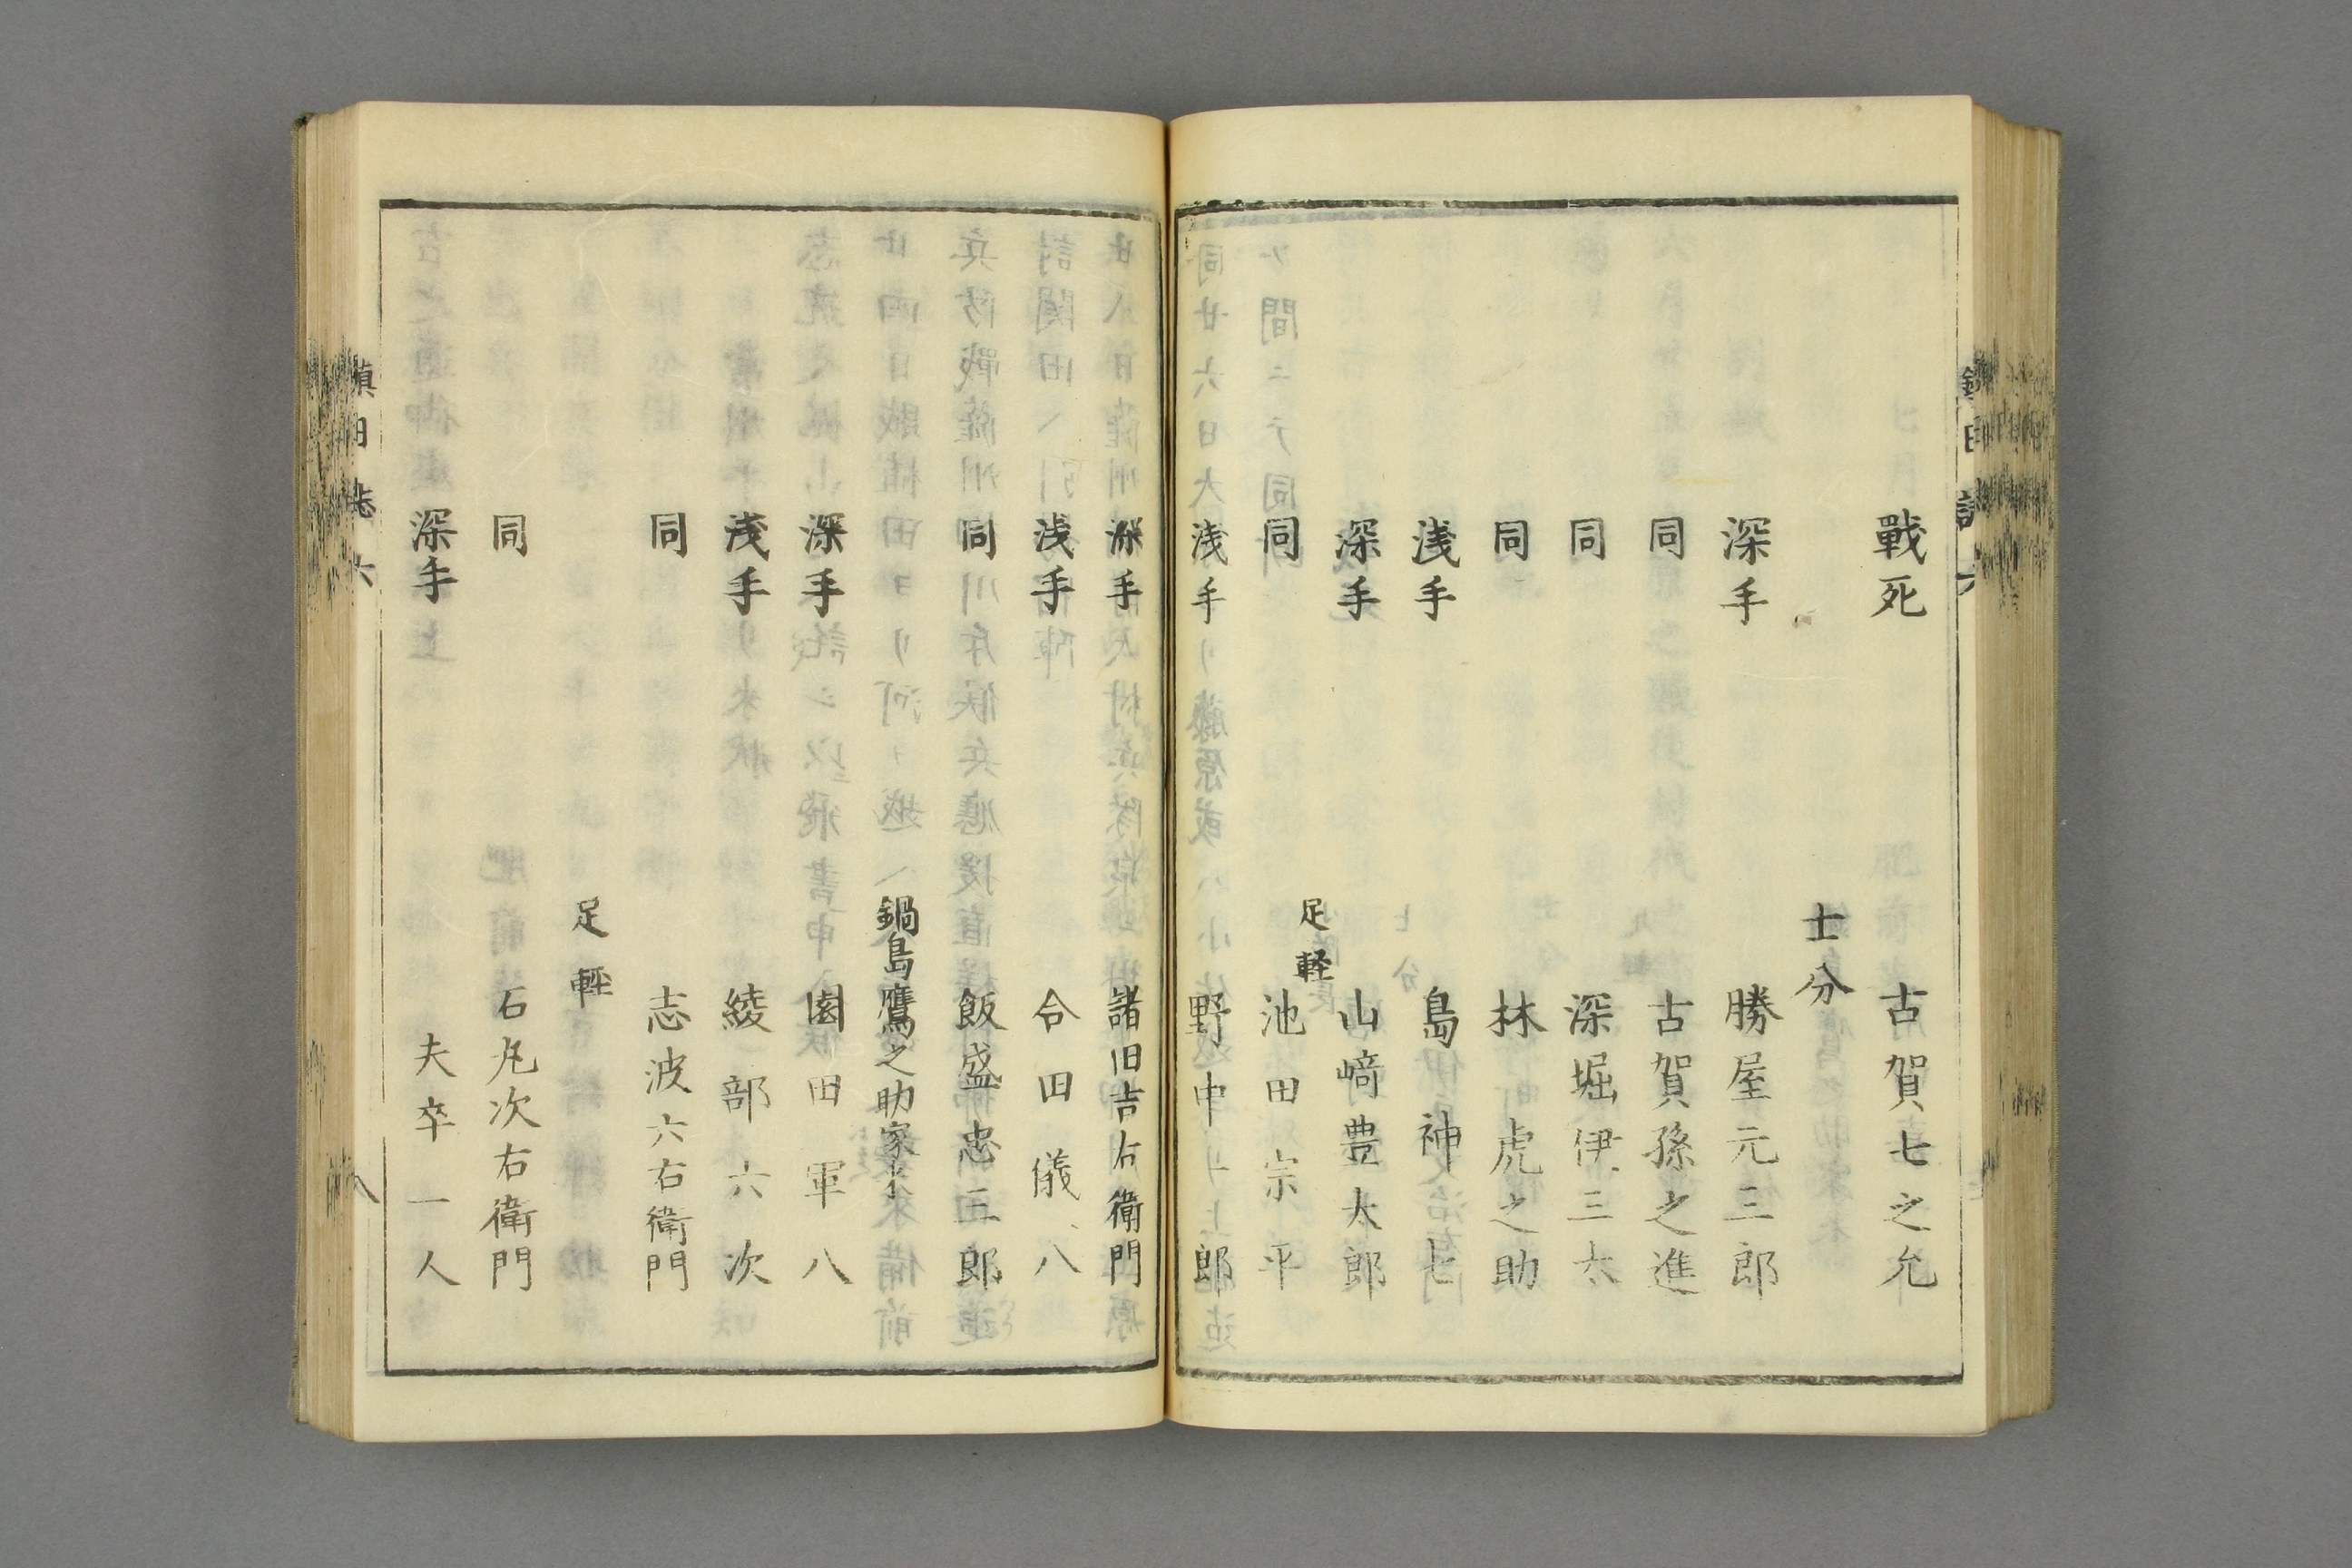 戰死 古賀七之允
士分
深手 勝屋元三郎
同 古賀孫之進
同 深堀伊三太
同 林虎之助
浅手 島神七
深手 山﨑豊太郎
足軽
同 池田宗平
浅手 野中郎
深手 諸旧吉右衛門
浅手 合田儀八
同 飯盛忠三郎
鍋島鷹之助家来
深手 園田軍八
浅手 綾部六次
同 志波六右衛門
足輕
同 石丸次右衛門
深手 夫卒一人
鎮日誌六 八